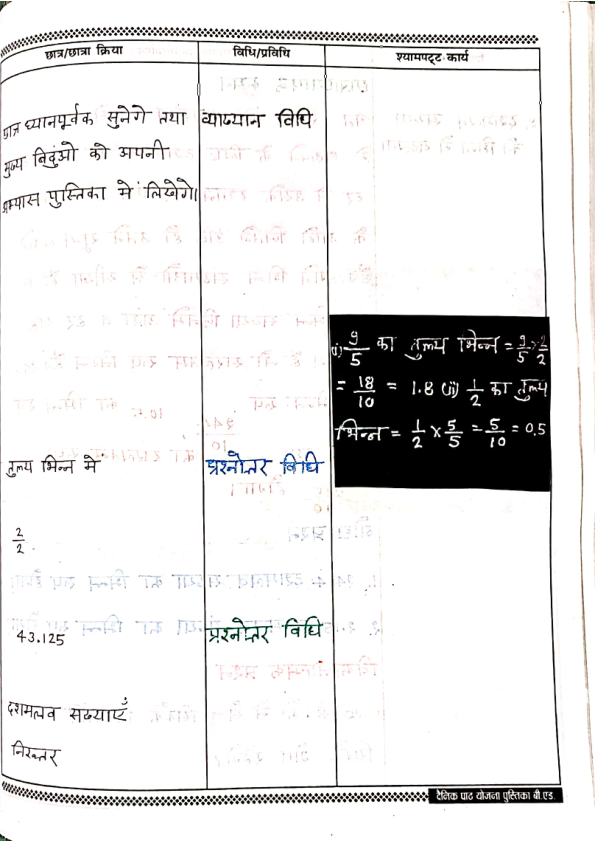 छात्र/छात्रा क्रिया
विधि/प्रविधि
श्यामपट्ट कार्य
छात्र ध्यानपूर्वक सुनेगे तथा
मुख्य बिदुंओ को अपनी
अभ्यास पुस्तिका में लिखेगे।
व्याख्यान विधि
(i) 9/5 का तुल्य भिन्न = 9/5 × 2/2
= 18/10 = 1.8 (ii) 1/2 का तुल्य
भिन्न = 1/2 × 5/5 = 5/10 = 0.5
तुल्य भिन्न मे
प्रश्नोत्तर विधि
2/2.
43.125
प्रश्नोत्तर विधि
दशमलव सख्याएँ
निरुत्तर
दैनिक पाठ योजना पुस्तिका बी.एड.